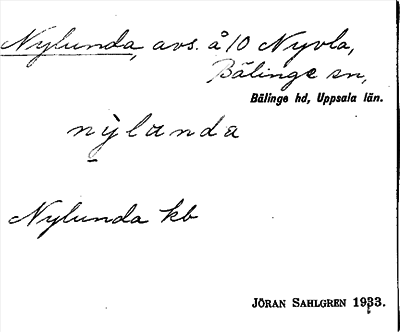 Nylunda, avs. å 10 Nyvla,
Bälinge sn,
Bälinge hd, Uppsala län.
nỳlanda
Nylunda kb
JÖRAN SAHLGREN 1933.